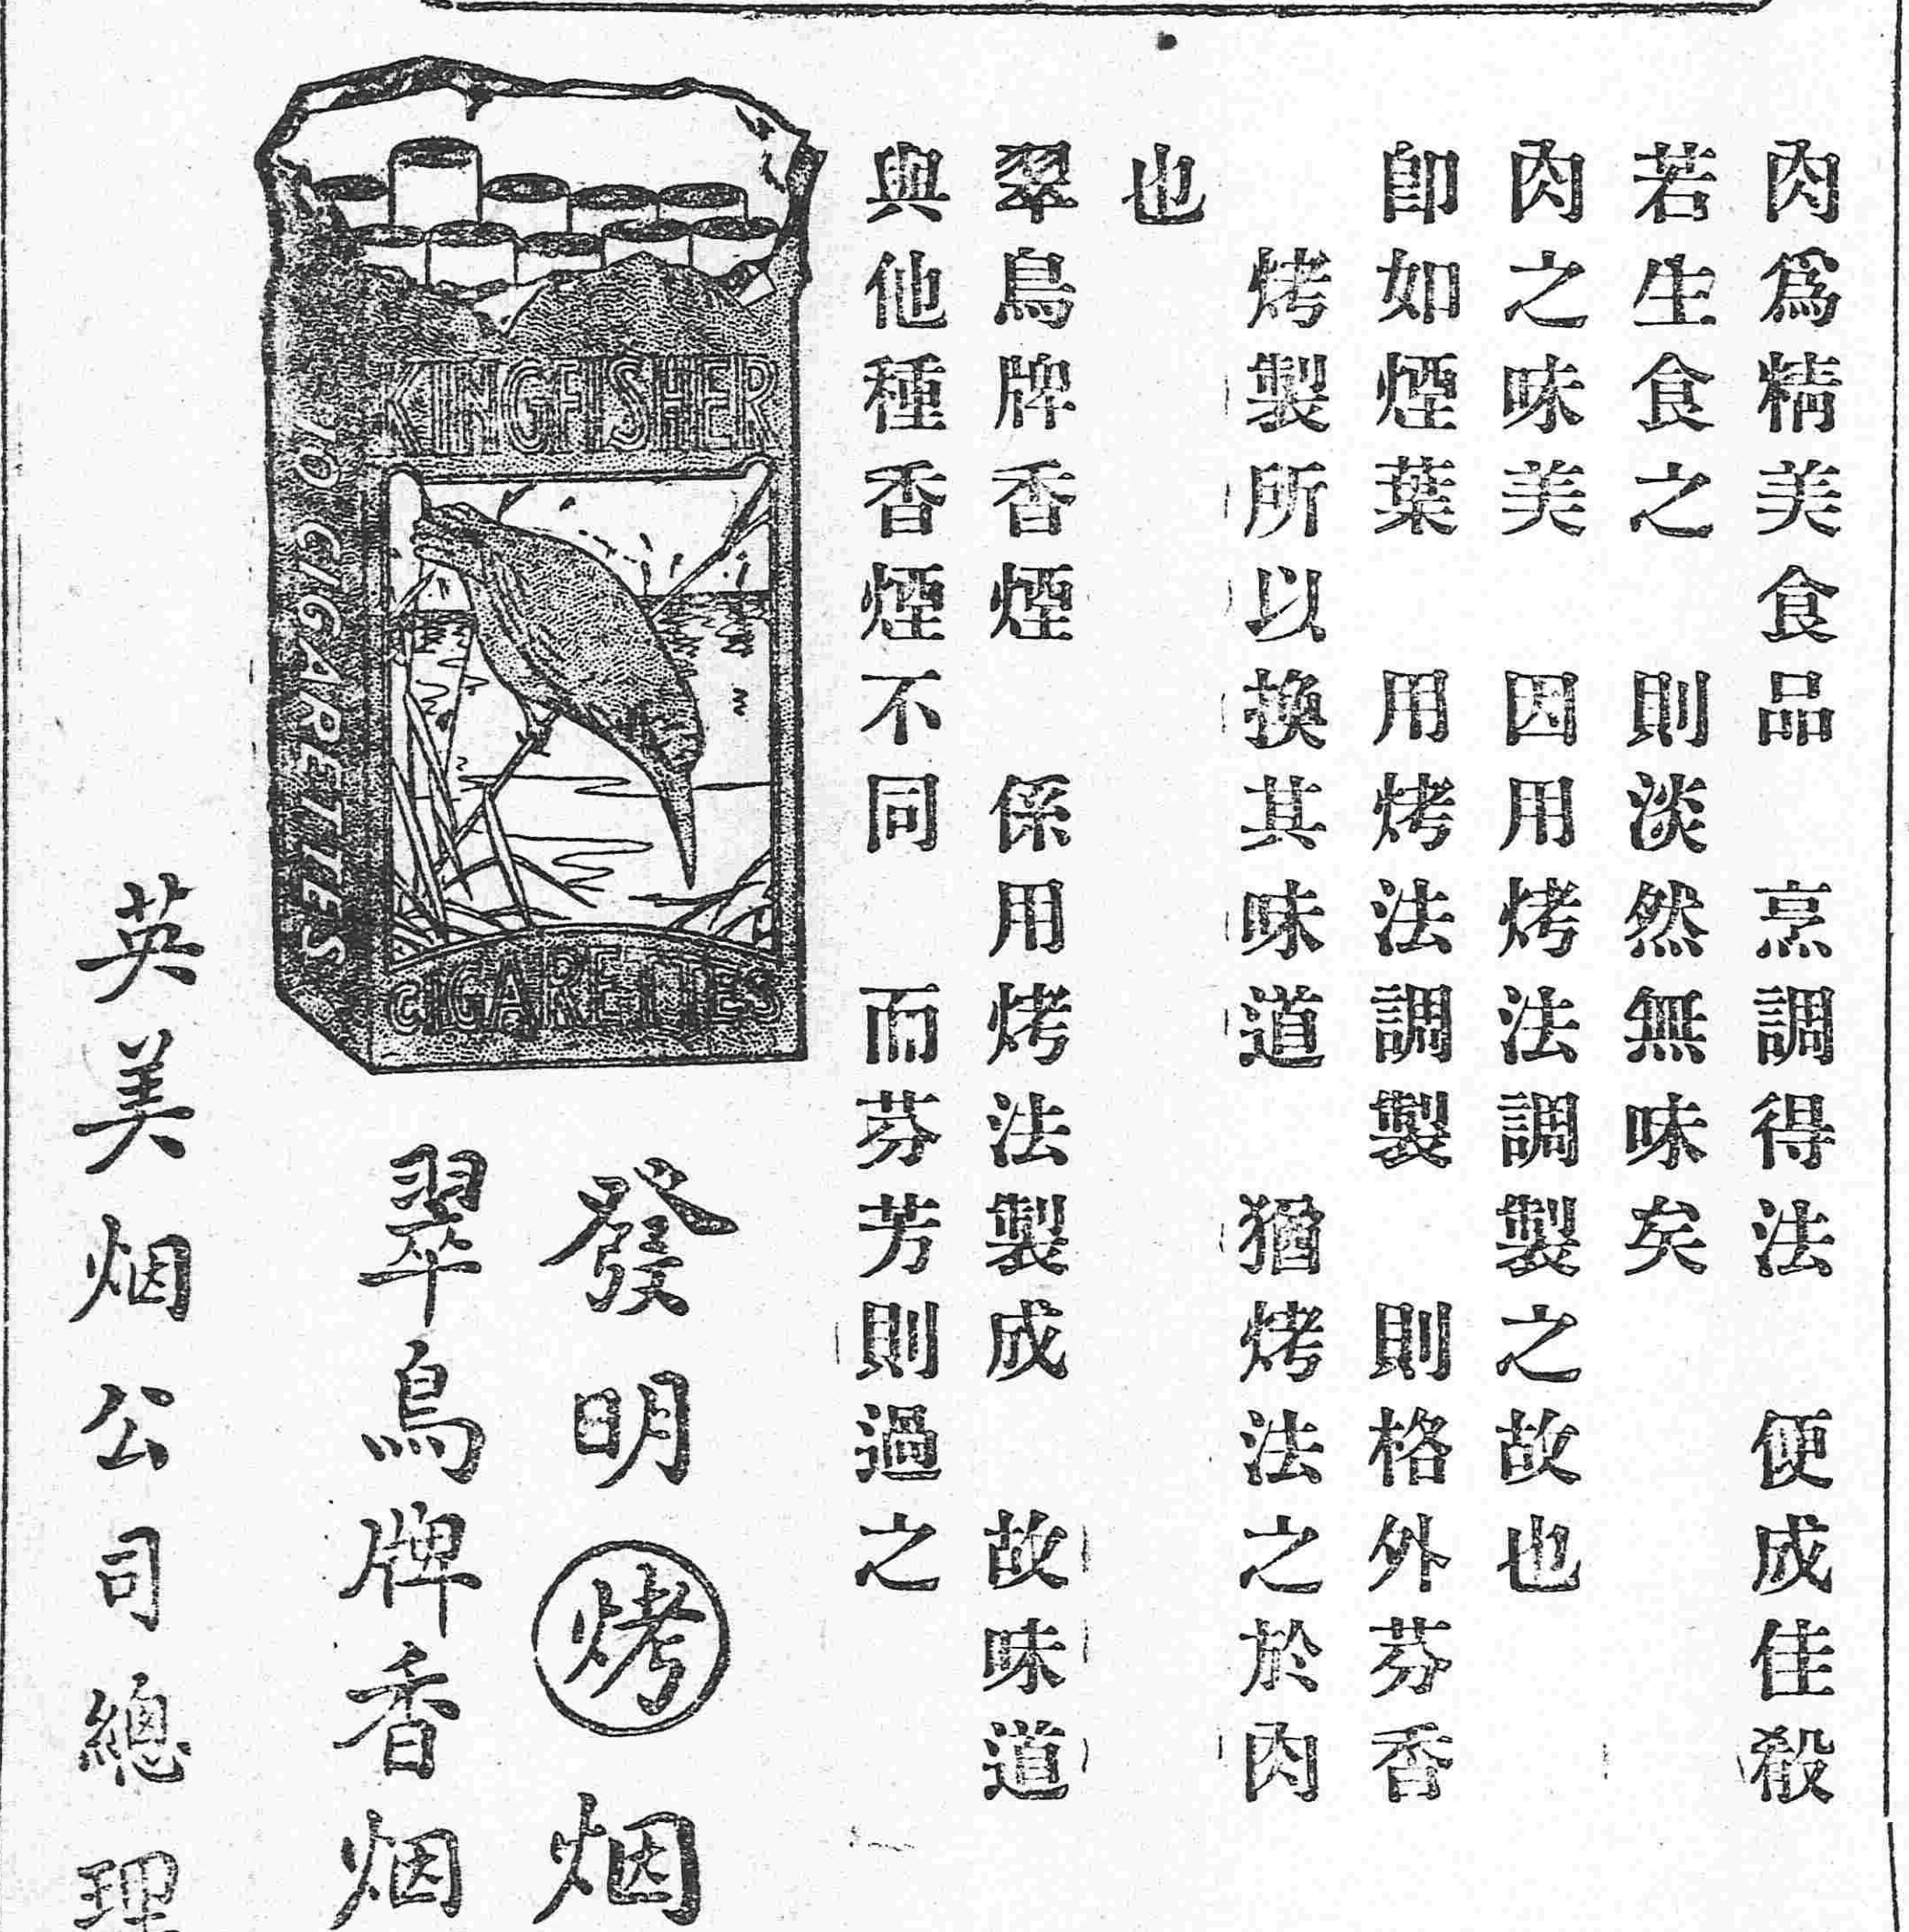 肉爲精美食品　烹調得法　便成佳殽
若生食之　則淡然無味矣
肉之味美　因用烤法調製之故也
卽如煙葉　用烤法調製　則格外芬香
烤製所以換其味道　猶烤法之於肉
也
翠鳥牌香煙　係用烤法製成　故味道
與他種香煙不同　而芬芳則過之
KINGFISHER
10 CIGARETTES
CIGARETTES
發明烤烟
翠鳥牌香烟
英美烟公司總理